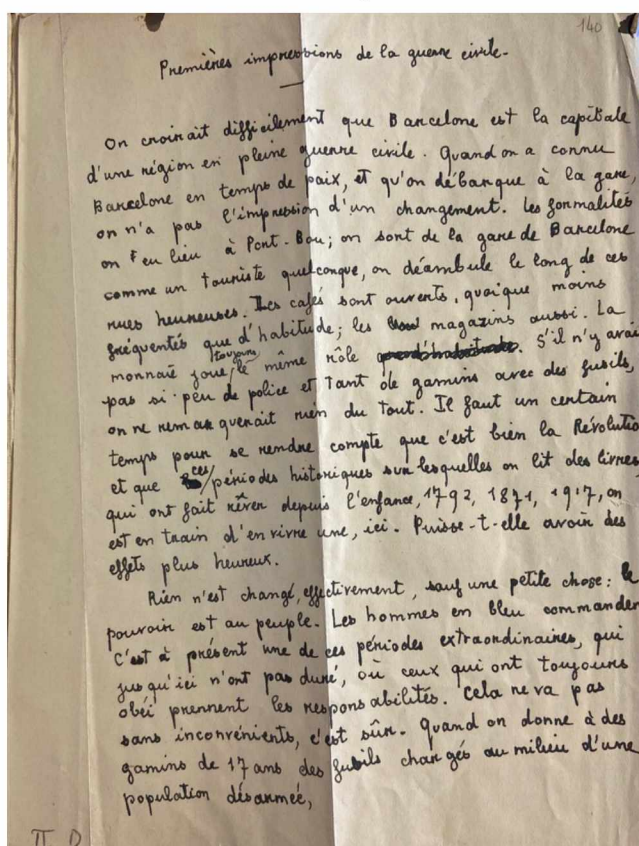 140
Premières impressions de la guerre civile.
On croirait difficilement que Barcelone est la capitale
d'une région en pleine guerre civile. Quand on a connu
Barcelone en temps de paix, et qu'on débarque à la gare,
on n'a pas l'impression d'un changement. Les formalités
on eu lieu à Port-Bou; on sort de la gare de Barcelone
comme un touriste quelconque, on déambule le long de ces
rues heureuses. Les cafés sont ouverts, quoique moins
fréquentés que d'habitude; les magazins aussi. La
monnaie joue toujours le même rôle. S'il n'y avai
pas si peu de police et tant de gamins avec des fusils,
on ne remarquerait rien du tout. Il faut un certain
temps pour se rendre compte que c'est bien la Révolutio
et que ces périodes historiques sur lesquelles on lit des livres,
qui ont fait rêver depuis l'enfance, 1792, 1871, 1917, on
est en train d'en vivre une, ici. Puisse-t-elle avoir des
effets plus heureux.
Rien n'est changé, effectivement, sauf une petite chose: le
pouvoir est au peuple. Les hommes en bleu commanden
C'est à présent une de ces périodes extraordinaires, qui
jusqu'ici n'ont pas duré, où ceux qui ont toujours
obéi prennent les responsabilités. Cela ne va pas
sans inconvénients, c'est sûr. Quand on donne à des
gamins de 17 ans des fusils chargés au milieu d'une
population désarmée,